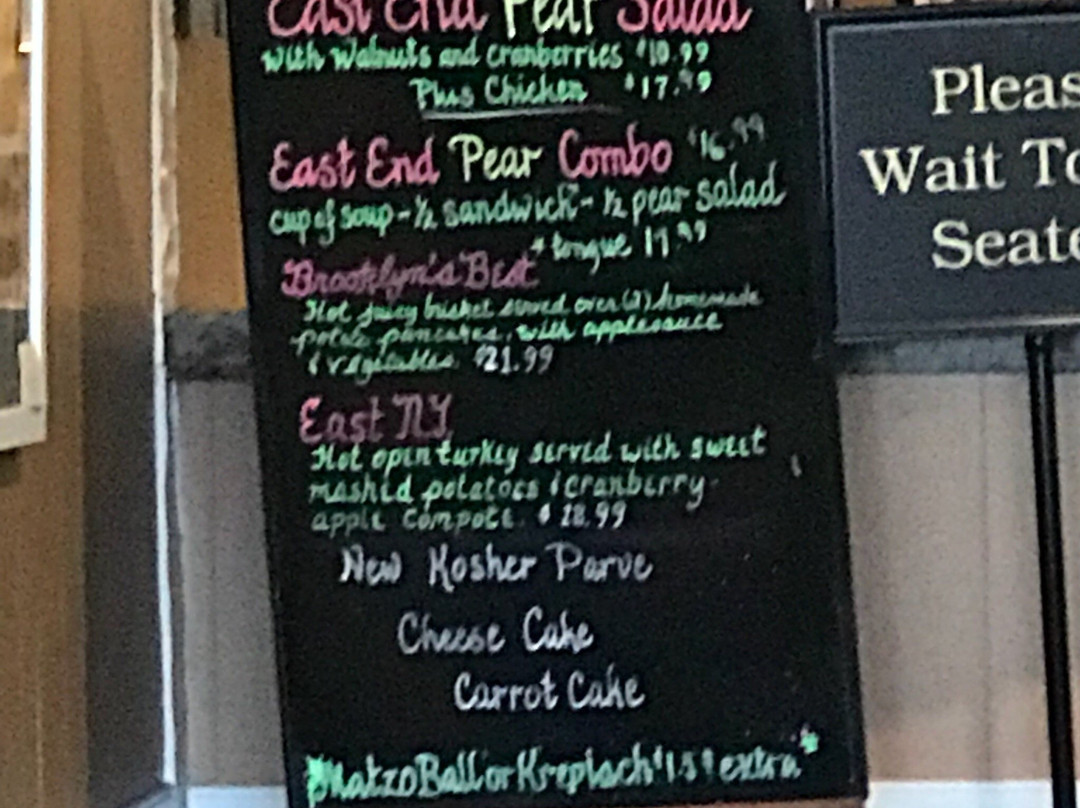 East End Pear Salad
with Walnuts and cranberries $10.99
Plus Chicken $17.99
East End Pear Combo $16.99
cup of soup - 1/2 sandwich - 1/2 pear salad
+ tongue 19.99
Brooklyn's Best
Hot juicy brisket served over (2) homemade
potato pancakes, with applesauce
& vegetables. $21.99
East NY
Hot open turkey served with sweet
mashed potatoes & cranberry-
apple compote. $ 18.99
New Kosher Parve
Cheese Cake
Carrot Cake
Matzo Ball or Kreplach $1.59 extra
Pleas
Wait To
Seate